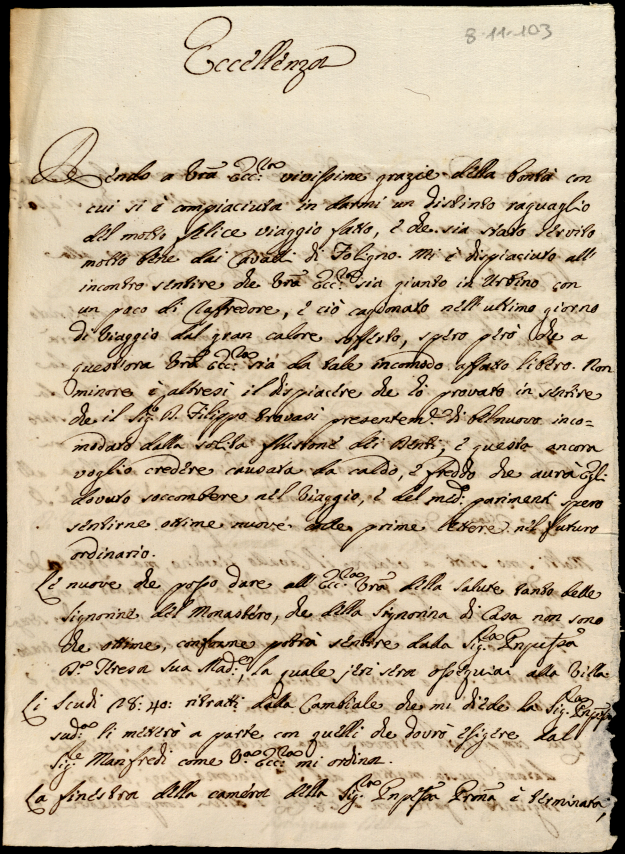 8-11-103
Eccellenza
Rendo a Vrã Ecc:za vivissime grazie della bontà con
cui si è compiaciuta in darmi un distinto raguaglio
del molto felice viaggio fatto, e che sia stato servito
molto bene dai Cavalli di Foligno. Mi è dispiaciuto all'
incontro sentire che Vrã Ecc:za sia giunto in Urbino con
un poco di raffredore, e ciò cagionato nell'ultimo giorno
di viaggio dal gran calore sofferto, spero però che a
quest'ora Vrã Ecc:za sia da tale incomodo affatto libero. Non
minore è altresì il dispiacere che hò provato in sentire
che il Sig:r D. Filippo trovasi presentem:te di bel nuovo inco=
modato dalla solita flussione dei Denti, e questa ancora
voglio credere causata da caldo, e freddo che aurà Egli
dovuto soccombere nel viaggio, e del med:o parimenti spero
sentirne ottime nuove colle prime lettere nel futuro
ordinario.
Le nuove che posso dare all'Ecc:za Vrã della salute tanto delle
Signorine del Monastéro, che della Signorina di Casa non sono
che ottime, conforme potrà sentire dalla Sig:ra Pnpessa
D.a Teresa sua Mad:e, la quale jeri sera ossequiai alla Villa
Li scudi 28:40: ritratti dalla Cambiale che mi diede la Sig:ra Pnpessa
sud:a li metterò a parte con quelli che dovrò esigere dal
Sig:e Manfredi come V:ra Ecc:za mi ordina.
La finestra della camera della Sig:ra Pnpessa Pronã è terminata,